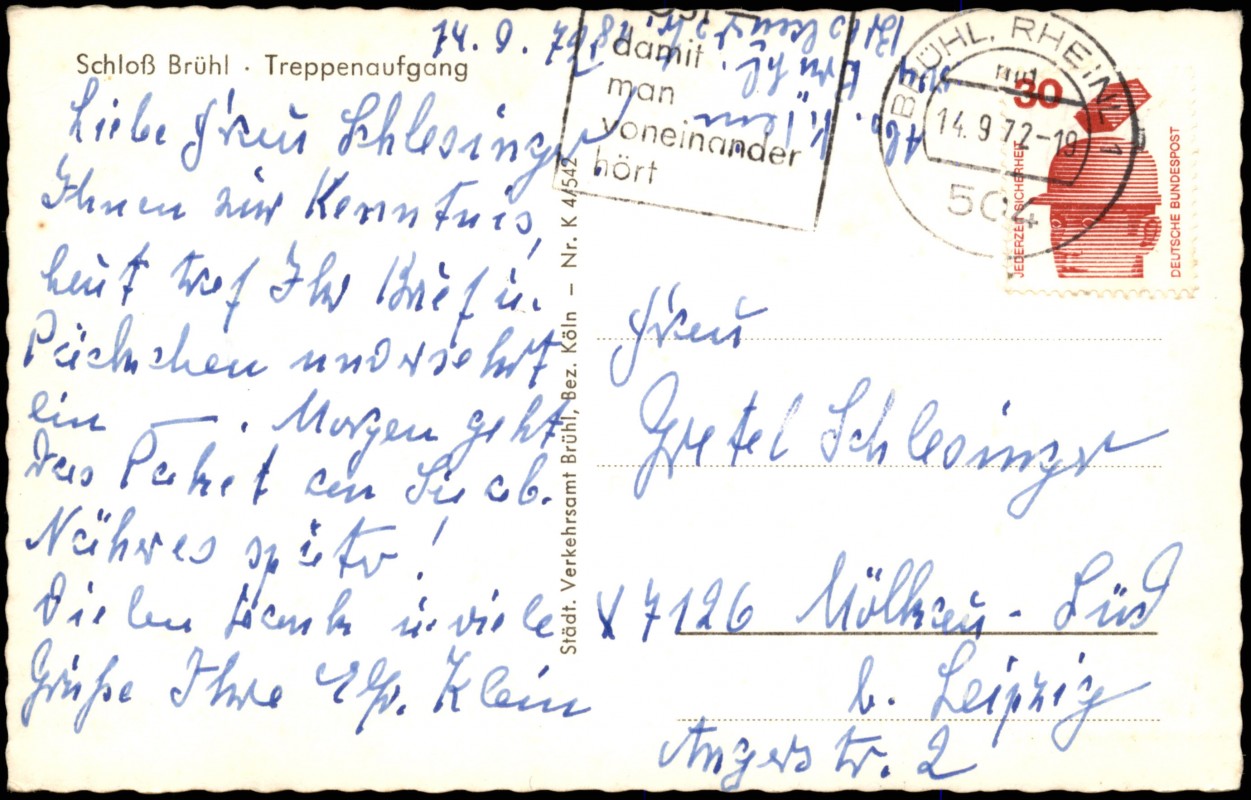 Schloß Brühl · Treppenaufgang
14. 9. 72
Liebe Frau Schlesinger
Ihnen zur Kenntnis,
heut traf Ihr Brief u.
Päckchen unversehrt
ein —. Morgen geht
das Paket an Sie ab.
Näheres später!
Vielen Dank u. viele
Grüße Ihre Elfr. Klein
Städt. Verkehrsamt Brühl, Bez. Köln – Nr. K 4/542
Abs. Klein
504 Brühl
damit
man
voneinander
hört
BRÜHL, RHEINL
14.9.72-19
504
30
JEDERZEIT SICHERHEIT
DEUTSCHE BUNDESPOST
Frau
Gretel Schlesinger
X 7126 Mölkau - Süd
b. Leipzig
Angerstr. 2